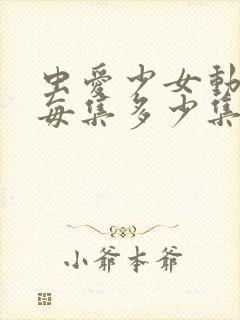 虫爱少女動
每集多少集
小爺本爺